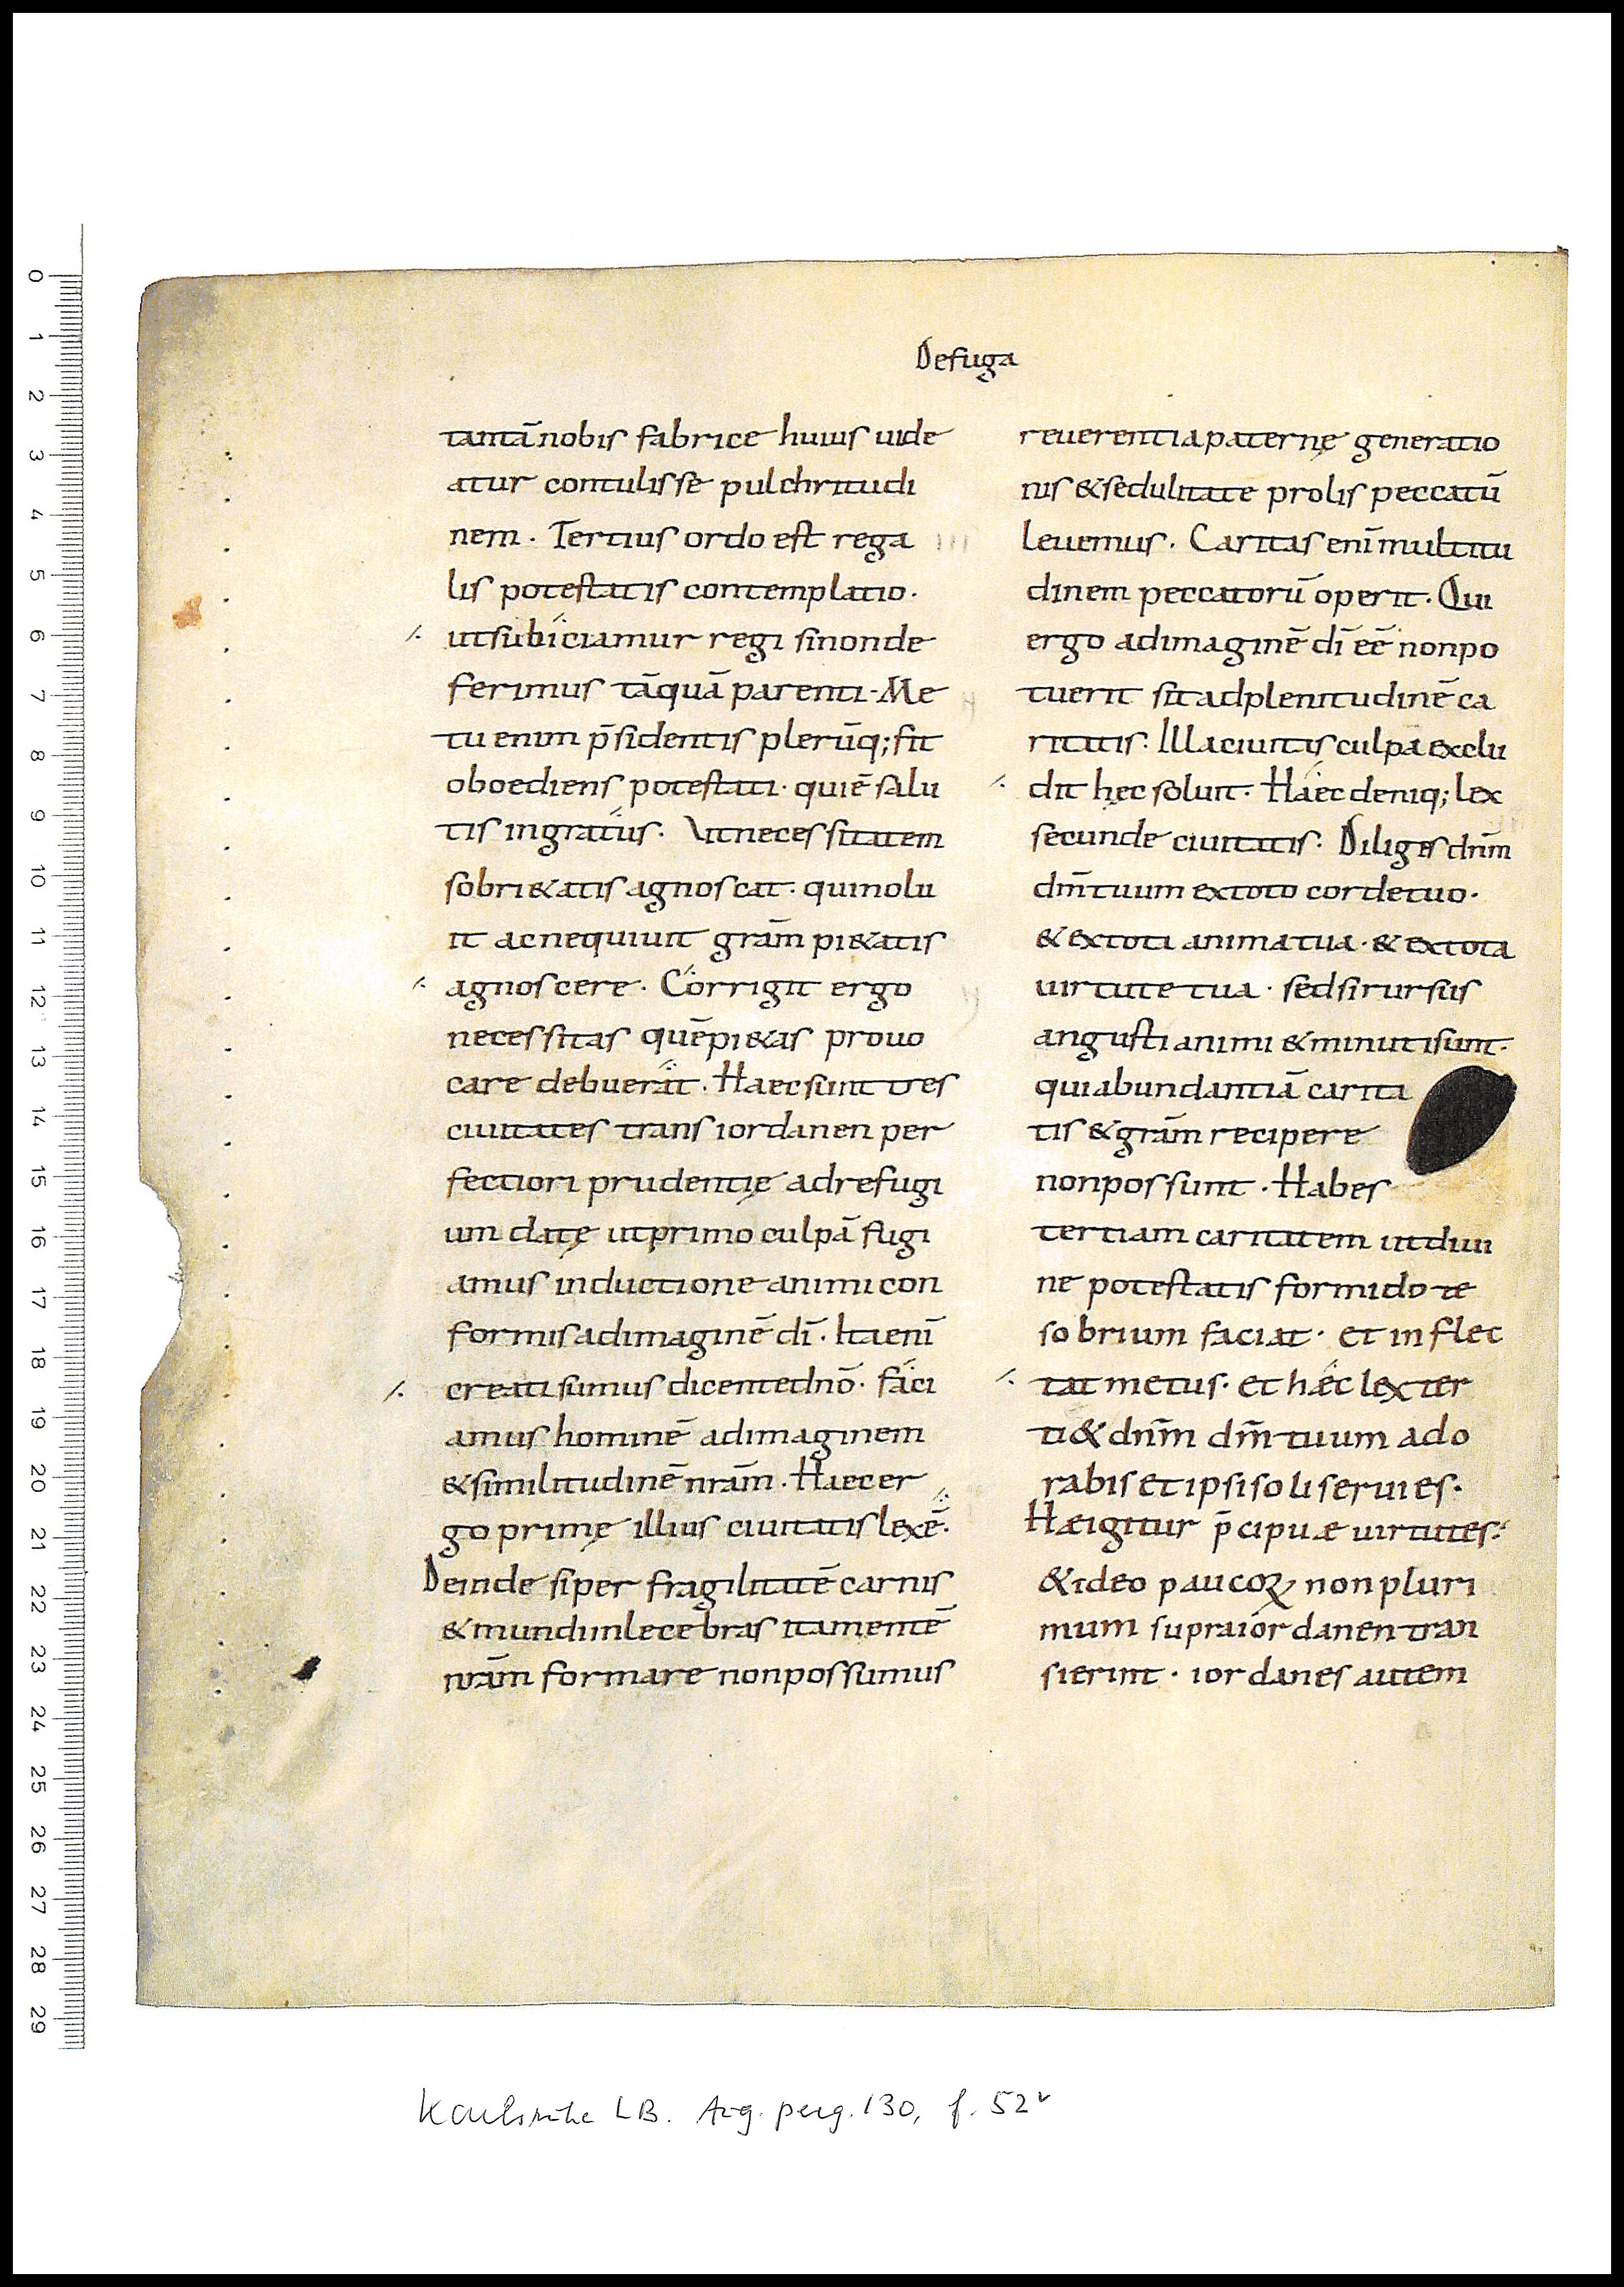 Defuga
tantā nobis fabrice huius uide
atur contulisse pulchritudi
nem. Tertius ordo est rega
lis potestatis contemplatio.
utsubiciamur regi sinonde
ferimus tāquā parenti. Me
tu enim p̄sidentis plerūq; fit
oboediens potestati. quiē salu
tis ingratus. Ut necessitatem
sobri&atis agnoscat. quinolu
it acnequiuit grām pi&atis
agnoscere. Corrigit ergo
necessitas quēpi&as prouo
care debuerat. Haec sunt tres
ciuitates trans iordanen per
fectiori prudentię adrefugi
um datę utprimo culpā fugi
amus inductione animi con
formis adimaginē dī. Ita enī
creati sumus dicente dnō. faci
amus hominē adimaginem
&similitudinē nrām. Haec er
go primę illius ciuitatis lex ē.
Deinde siper fragilitatē carnis
&mundi inlecebras ita mentē
nrām formare nonpossumus
reuerentia paternę generatio
nis &sedulitate prolis peccatū
leuemus. Caritas enī multitu
dinem peccatorū operit. Qui
ergo adimaginē dī eē nonpo
tuerit sit adplenitudinē ca
ritatis. Illa ciuitas culpā exclu
dit hęc soluit. Haec deniq; lex
secunde ciuitatis. Diliges dnm̄
dm̄ tuum extoto corde tuo.
& extota anima tua. & extota
uirtute tua. sed si rursus
angusti animi &minuti sunt.
qui abundantiā carita
tis &grām recipere
nonpossunt. Habes
tertiam caritatem ut diui
ne potestatis formido te
sobrium faciat. et inflec
tat metus. et hæc lex ter
ti& dnm̄ dm̄ tuum ado
rabis et ipsi soli seruies.
Hæ igitur p̄cipuæ uirtutes.
&ideo paucoꝝ non pluri
mum supra iordanen tran
sierint. iordanes autem
Karlsruhe LB. Aug. perg. 130, f. 52v
0
1
2
3
4
5
6
7
8
9
10
11
12
13
14
15
16
17
18
19
20
21
22
23
24
25
26
27
28
29